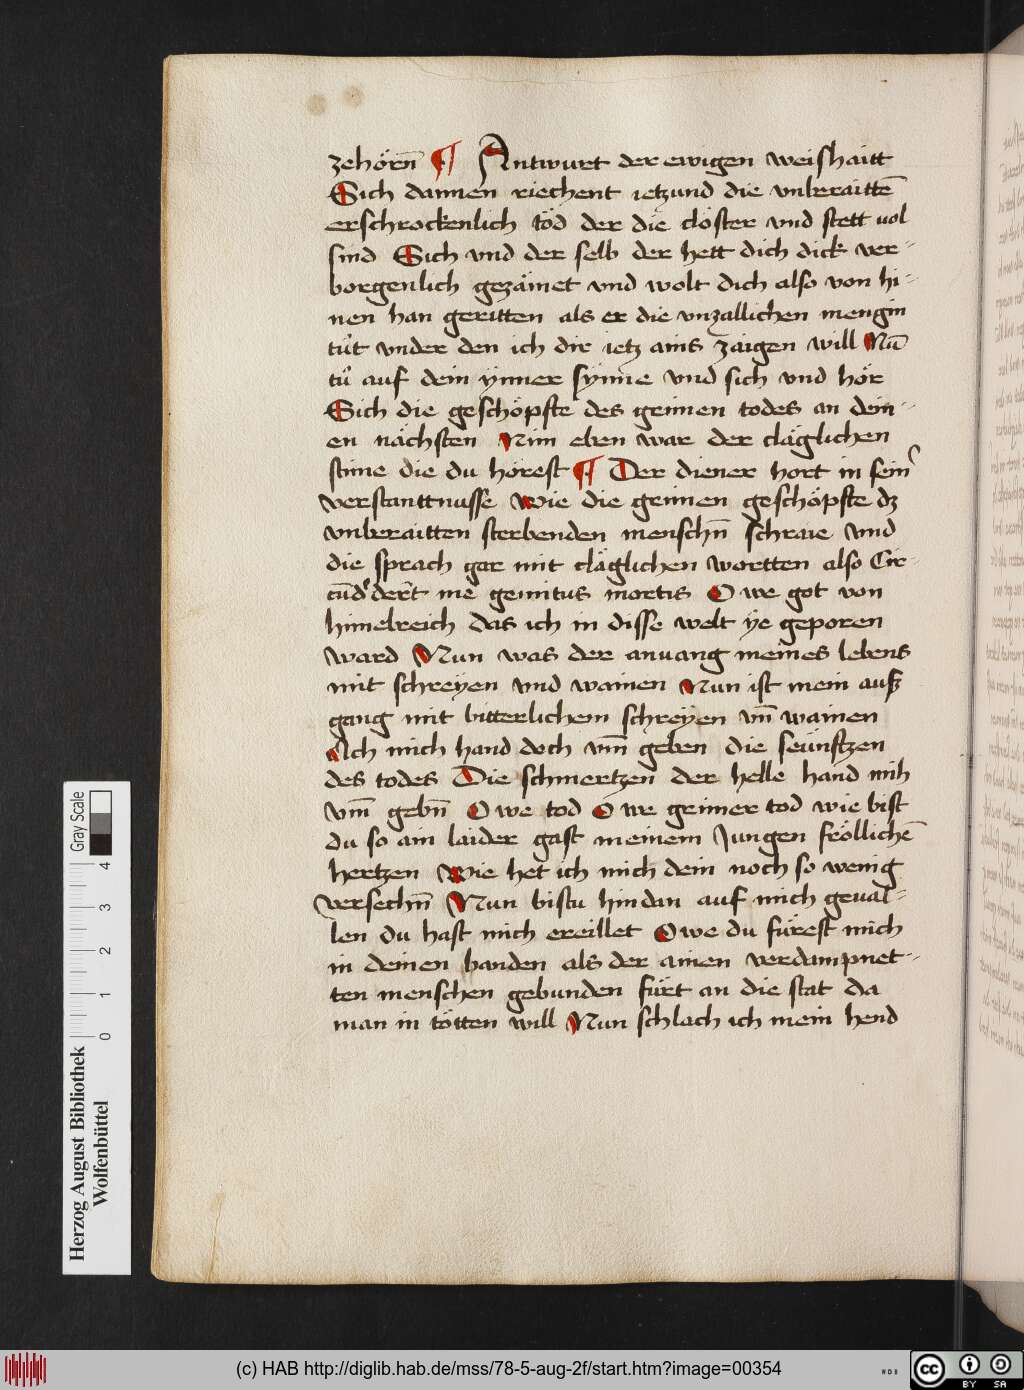 zehörn̄ ¶ Antwurt der ewigen weishaitt
Sich dannen riechent ietzund die vnberaittē
erschrockenlich töd der die clöster vnd stett uol
sind Sich vnd der selb der hett dich dick ver-
borgenlich gezämet vnd wolt dich also von hi-
nen han geritten als er die vnzallichen mengin
tůt vnder den ich dir ietz ains zaigen will Nū
tů auf dein ynner synne vnd sich vnd hör
Sich die geschöpfte des grimen todes an dein-
en nächsten Nim eben war der cläglichen
stime die du hörest ¶ Der diener hort in sein
verstanttnusse wie die grimen geschöpfte dz
vnberaitten sterbenden menschn̄ schraie vnd
die sprach gar mit cläglichen wortten also Cir-
cūdedert me gemitus mortis O we got von
himelreich das ich in disse welt ye geporen
ward Nun was der anuang meines lebens
mit schreyen vnd wainen Nun ist mein ausz
gang mit bitterlichem schreyen vn̄ wainen
Ach mich hand doch vm̄ geben die seünftzen
des todes Die schmertzen der helle hand mih
vm̄ gebn̄ O we tod O we grimer tod wie bist
du so ain laider gast meinem Jungen fröllichē
hertzen wie het ich mich dein noch so wenig
versechn̄ Nun bistu hindan auf mich geual-
len du hast mich ereillet Owe du fürest mich
in deinen banden als der ainen verdampnet-
ten menschen gebunden fürt an die stat da
man in tötten will Nun schlach ich mein hend
Herzog August Bibliothek
Wolfenbüttel
0 1 2 3 4
Gray Scale
(c) HAB http://diglib.hab.de/mss/78-5-aug-2f/start.htm?image=00354
cc BY SA